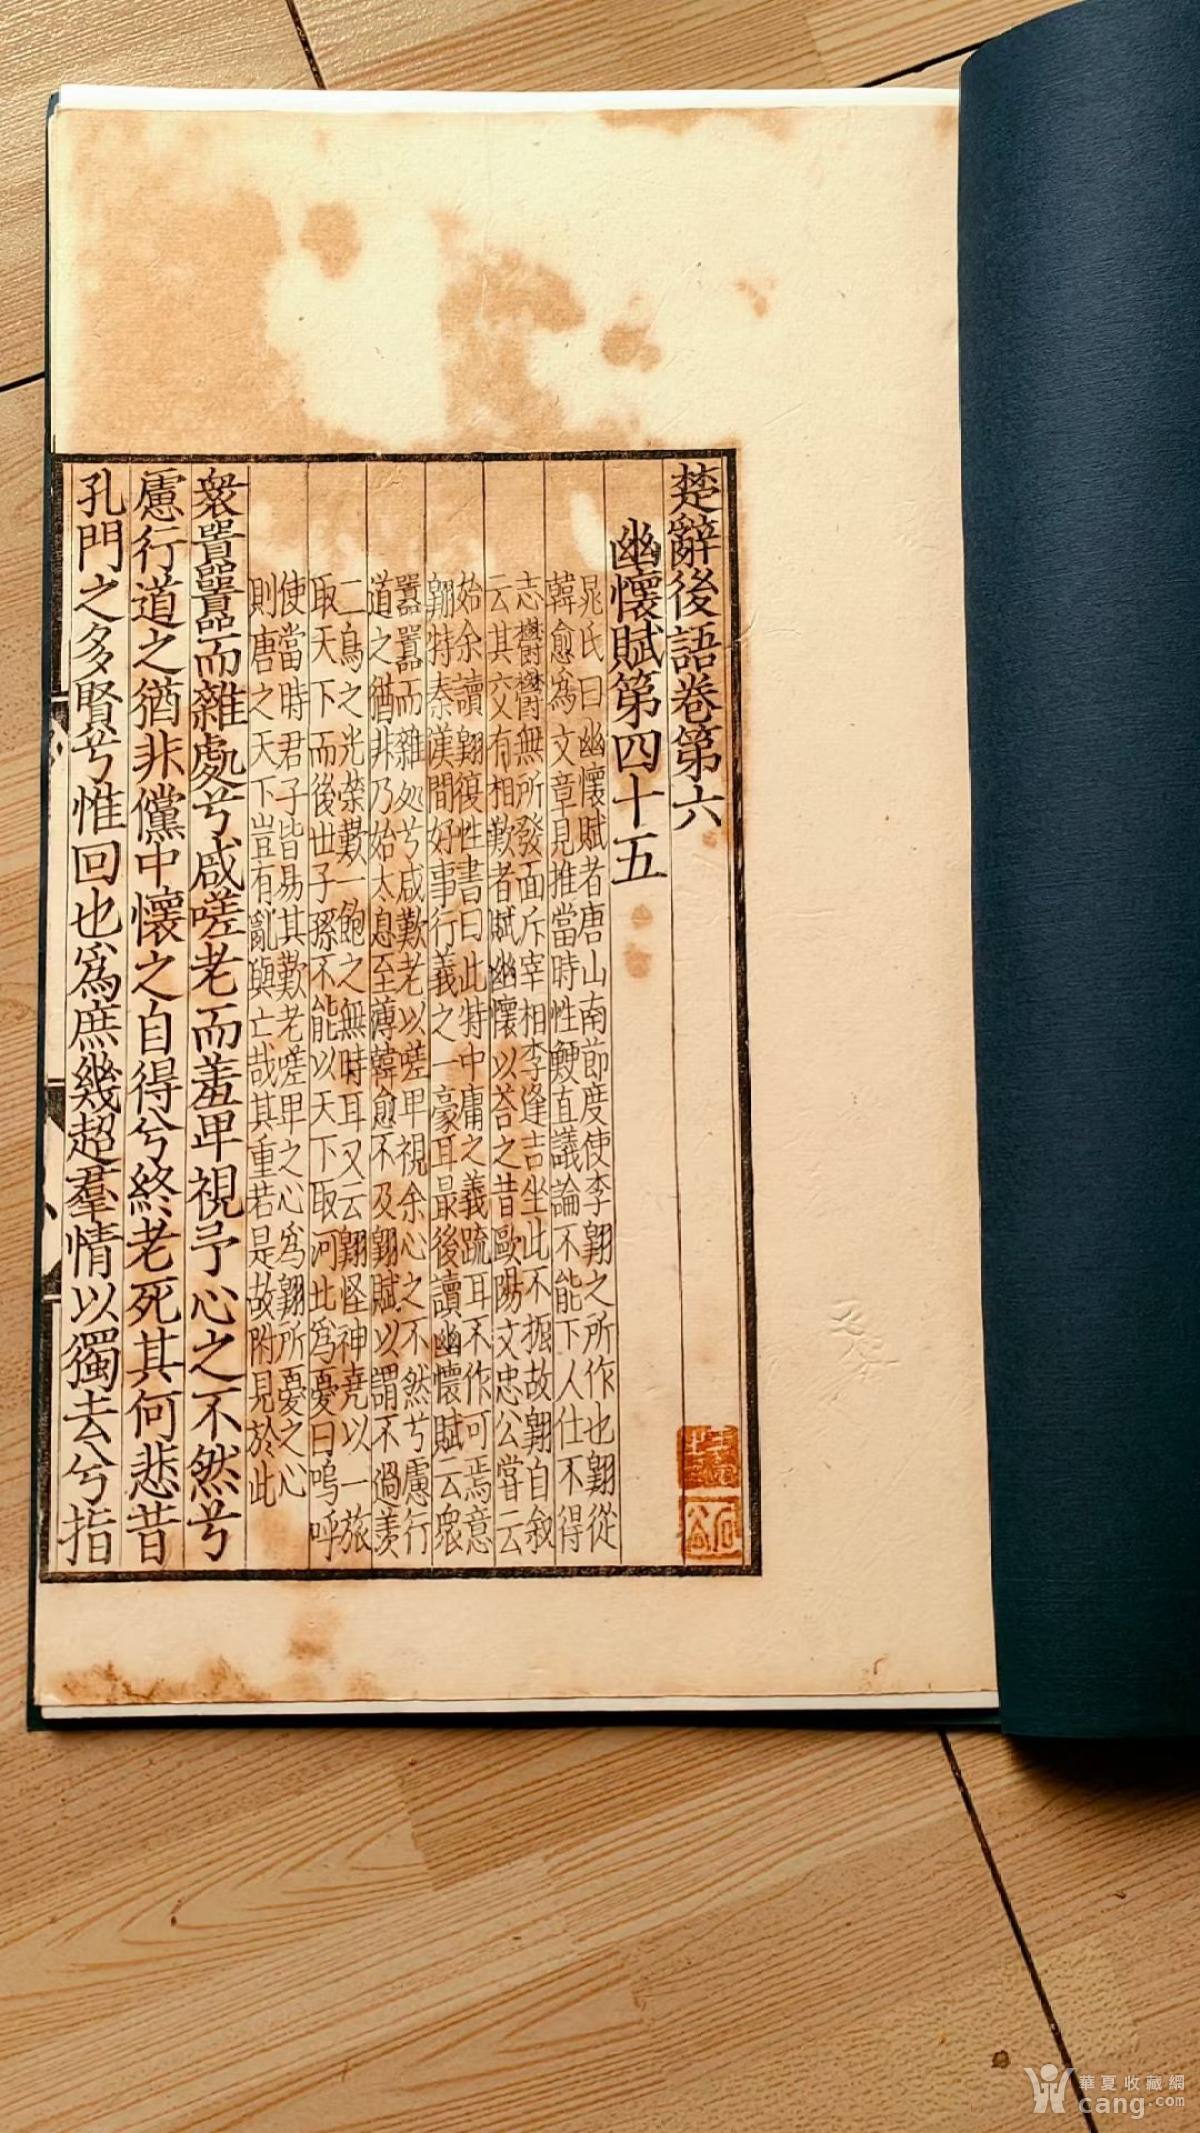 楚辭後語卷第六
幽懷賦第四十五
晁氏曰幽懷賦者唐山南節度使李翺之所作也翺從
韓愈為文章見推當時性鯁直議論不能下人仕不得
志鬱鬱無所發面斥宰相李逢吉坐此不振故翺自敘
云其交有相歎者賦幽懷以荅之昔歐陽文忠公嘗云
始余讀翺復性書曰此特中庸之義疏耳不作可焉意
翺特秦漢間好事行義之一豪耳最後讀幽懷賦云衆
囂囂而雜処兮咸歎老以嗟甲視余心之不然兮慮行
道之猶非乃始太息至薄韓愈不及翺賦以謂不過羡
二鳥之光榮歎一飽之無時耳又云翺怪神堯以一旅
取天下而後世子孫不能以天下取河北為憂曰嗚呼
使當時君子皆易其歎老嗟甲之心為翺所憂之心
則唐之天下豈有亂與亡哉其重若是故附見於此
衆囂囂而雜處兮咸嗟老而羞甲視予心之不然兮
慮行道之猶非儻中懷之自得兮終老死其何悲昔
孔門之多賢兮惟回也為庶幾超羣情以獨去兮指
華夏收藏網
cang.com